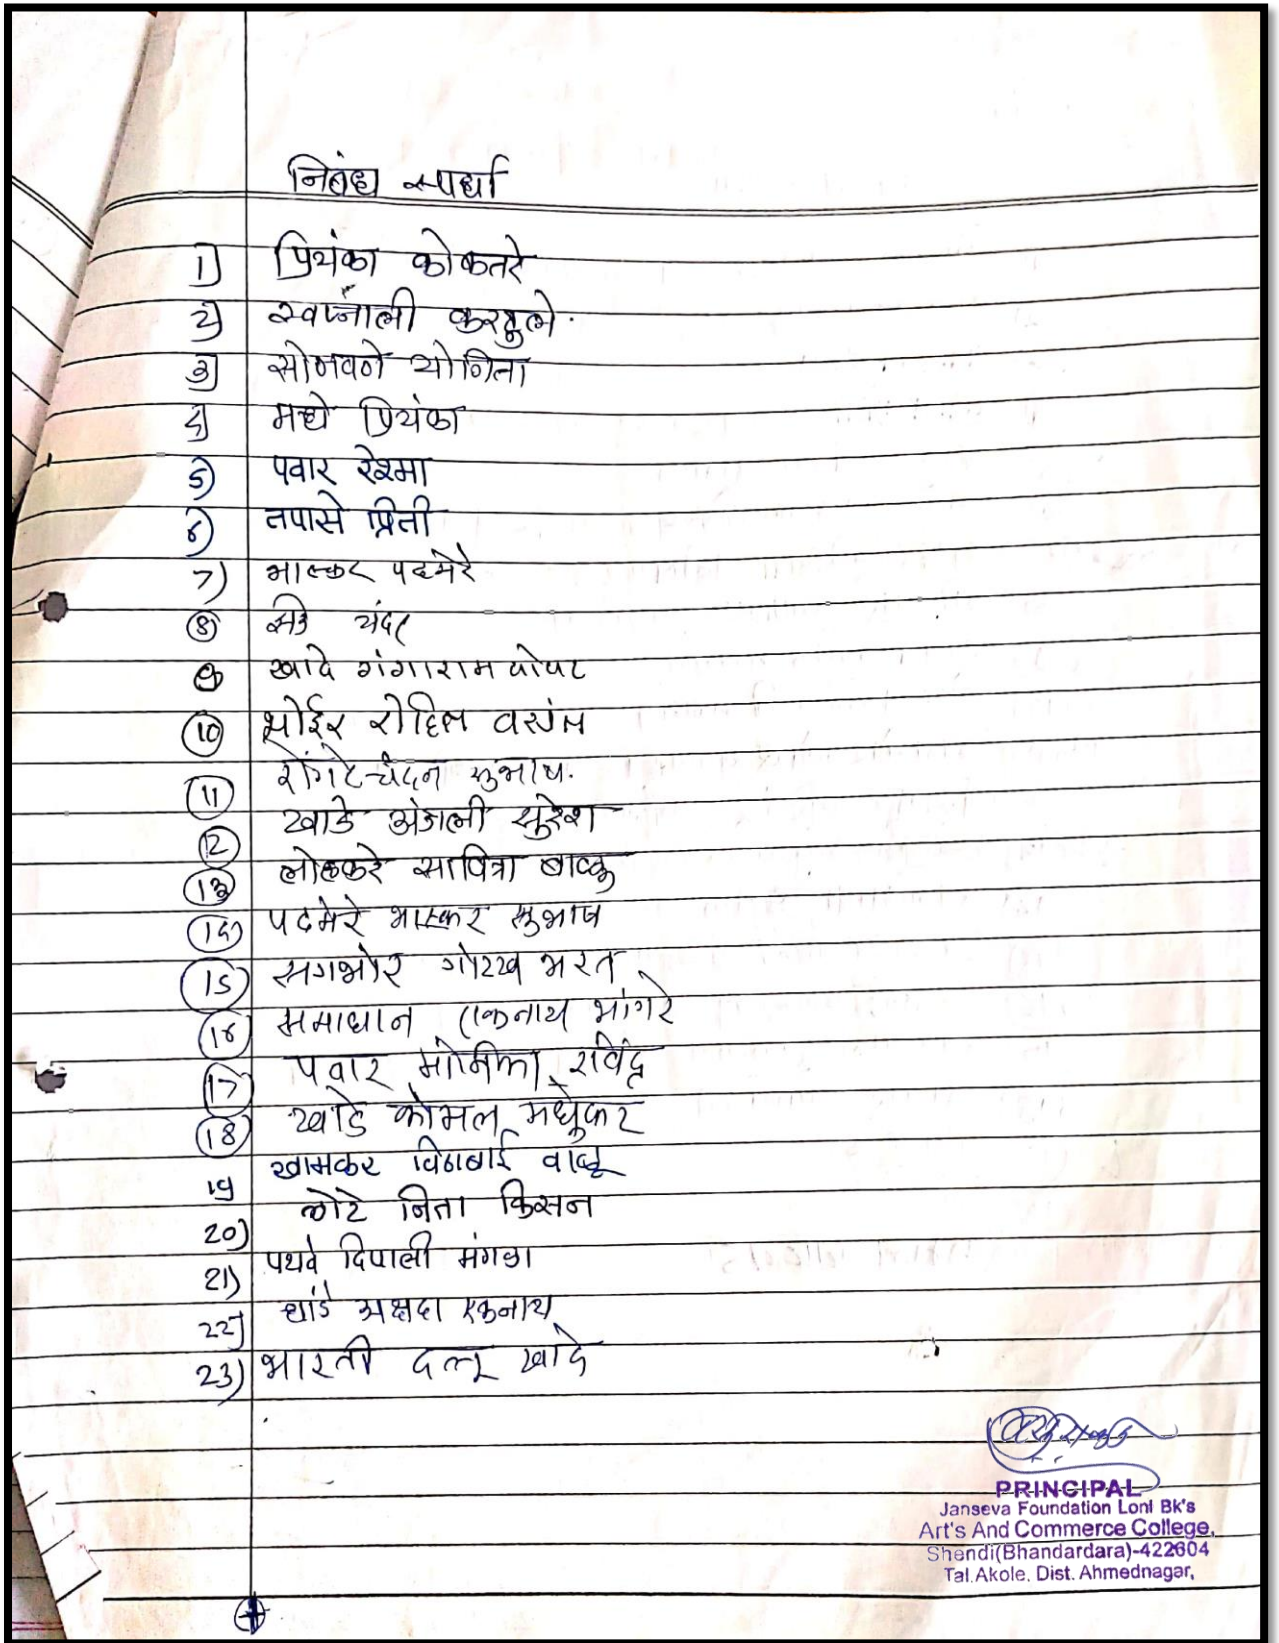 निबंध स्पर्धा
1) प्रियंका कोकतरे
2) स्वप्नाली करटुले.
3) सोनवने योगिता
4) मध्ये प्रियंका
5) पवार रेश्मा
6) तपासे प्रिती
7) भास्कर पदमेरे
8
9 खादे गंगाराम पोपट
10 भोईर रोहित वसंत
11 रोंगटे चंदन सुभाष.
12 खाडे अंजली सुरेश
13 लोहकरे सावित्रा बाळु
14 पदमेरे भास्कर सुभाष
15 सगभोर गोरख भरत
16 समाधान एकनाथ भांगरे
17 पवार मोनिका रविंद्र
18 खाडे कोमल मधुकर
19 खामकर विठाबाई वाळू
20) लोटे निता किसन
21) पथवे दिपाली मंगळा
22) धांडे अक्षदा एकनाथ
23) भारती दत्तू खादे
PRINCIPAL
Janseva Foundation Loni Bk's
Art's And Commerce College,
Shendi(Bhandardara)-422604
Tal.Akole, Dist. Ahmednagar,